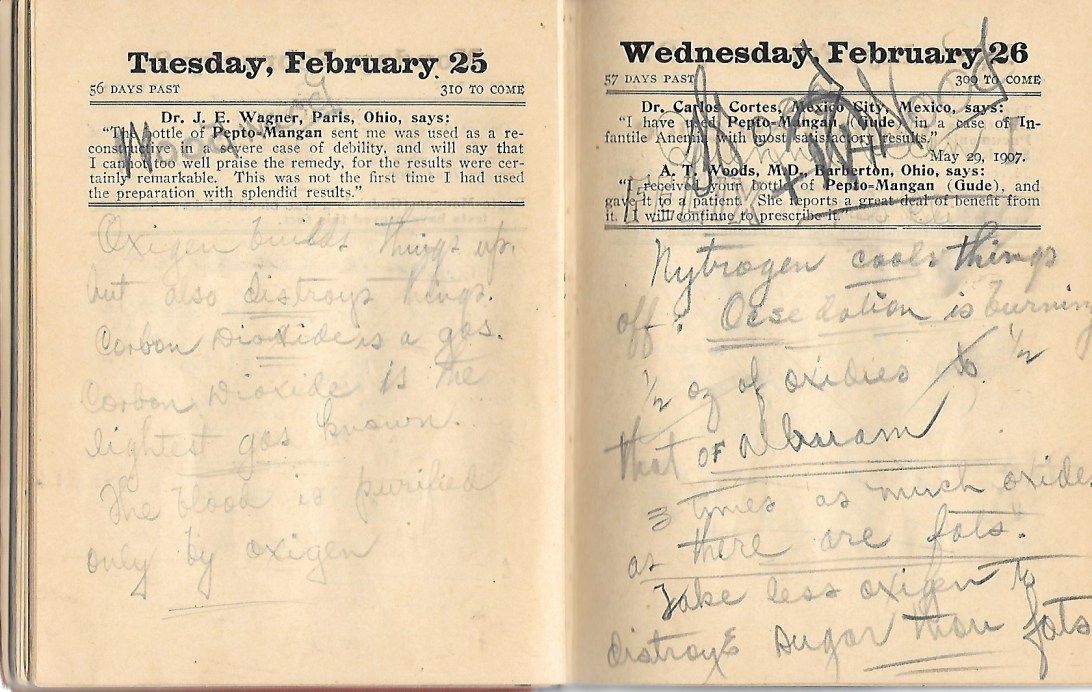 Tuesday, February 25
56 DAYS PAST 310 TO COME
Dr. J. E. Wagner, Paris, Ohio, says:
"The bottle of Pepto-Mangan sent me was used as a re-
constructive in a severe case of debility, and will say that
I cannot too well praise the remedy, for the results were cer-
tainly remarkable. This was not the first time I had used
the preparation with splendid results."
Oxigen builds things up
but also distroys things.
Carbon Dioxide is a gas.
Carbon Dioxide is the
lightest gas known.
The blood is purified
only by oxigen
Wednesday, February 26
57 DAYS PAST 309 TO COME
Dr. Carlos Cortes, Mexico City, Mexico, says:
"I have used Pepto-Mangan (Gude) in a case of In-
fantile Anemia with most satisfactory results."
May 29, 1907.
A. T. Woods, M.D., Barberton, Ohio, says:
"I received your bottle of Pepto-Mangan (Gude), and
gave it to a patient. She reports a great deal of benefit from
it. I will continue to prescribe it."
Nytrogen cools things
off. is burning
1/2 oz of oxidies to 1/2
that of
3 times as much oxides
as there are fats.
Take less oxigen to
distroy sugar than fats